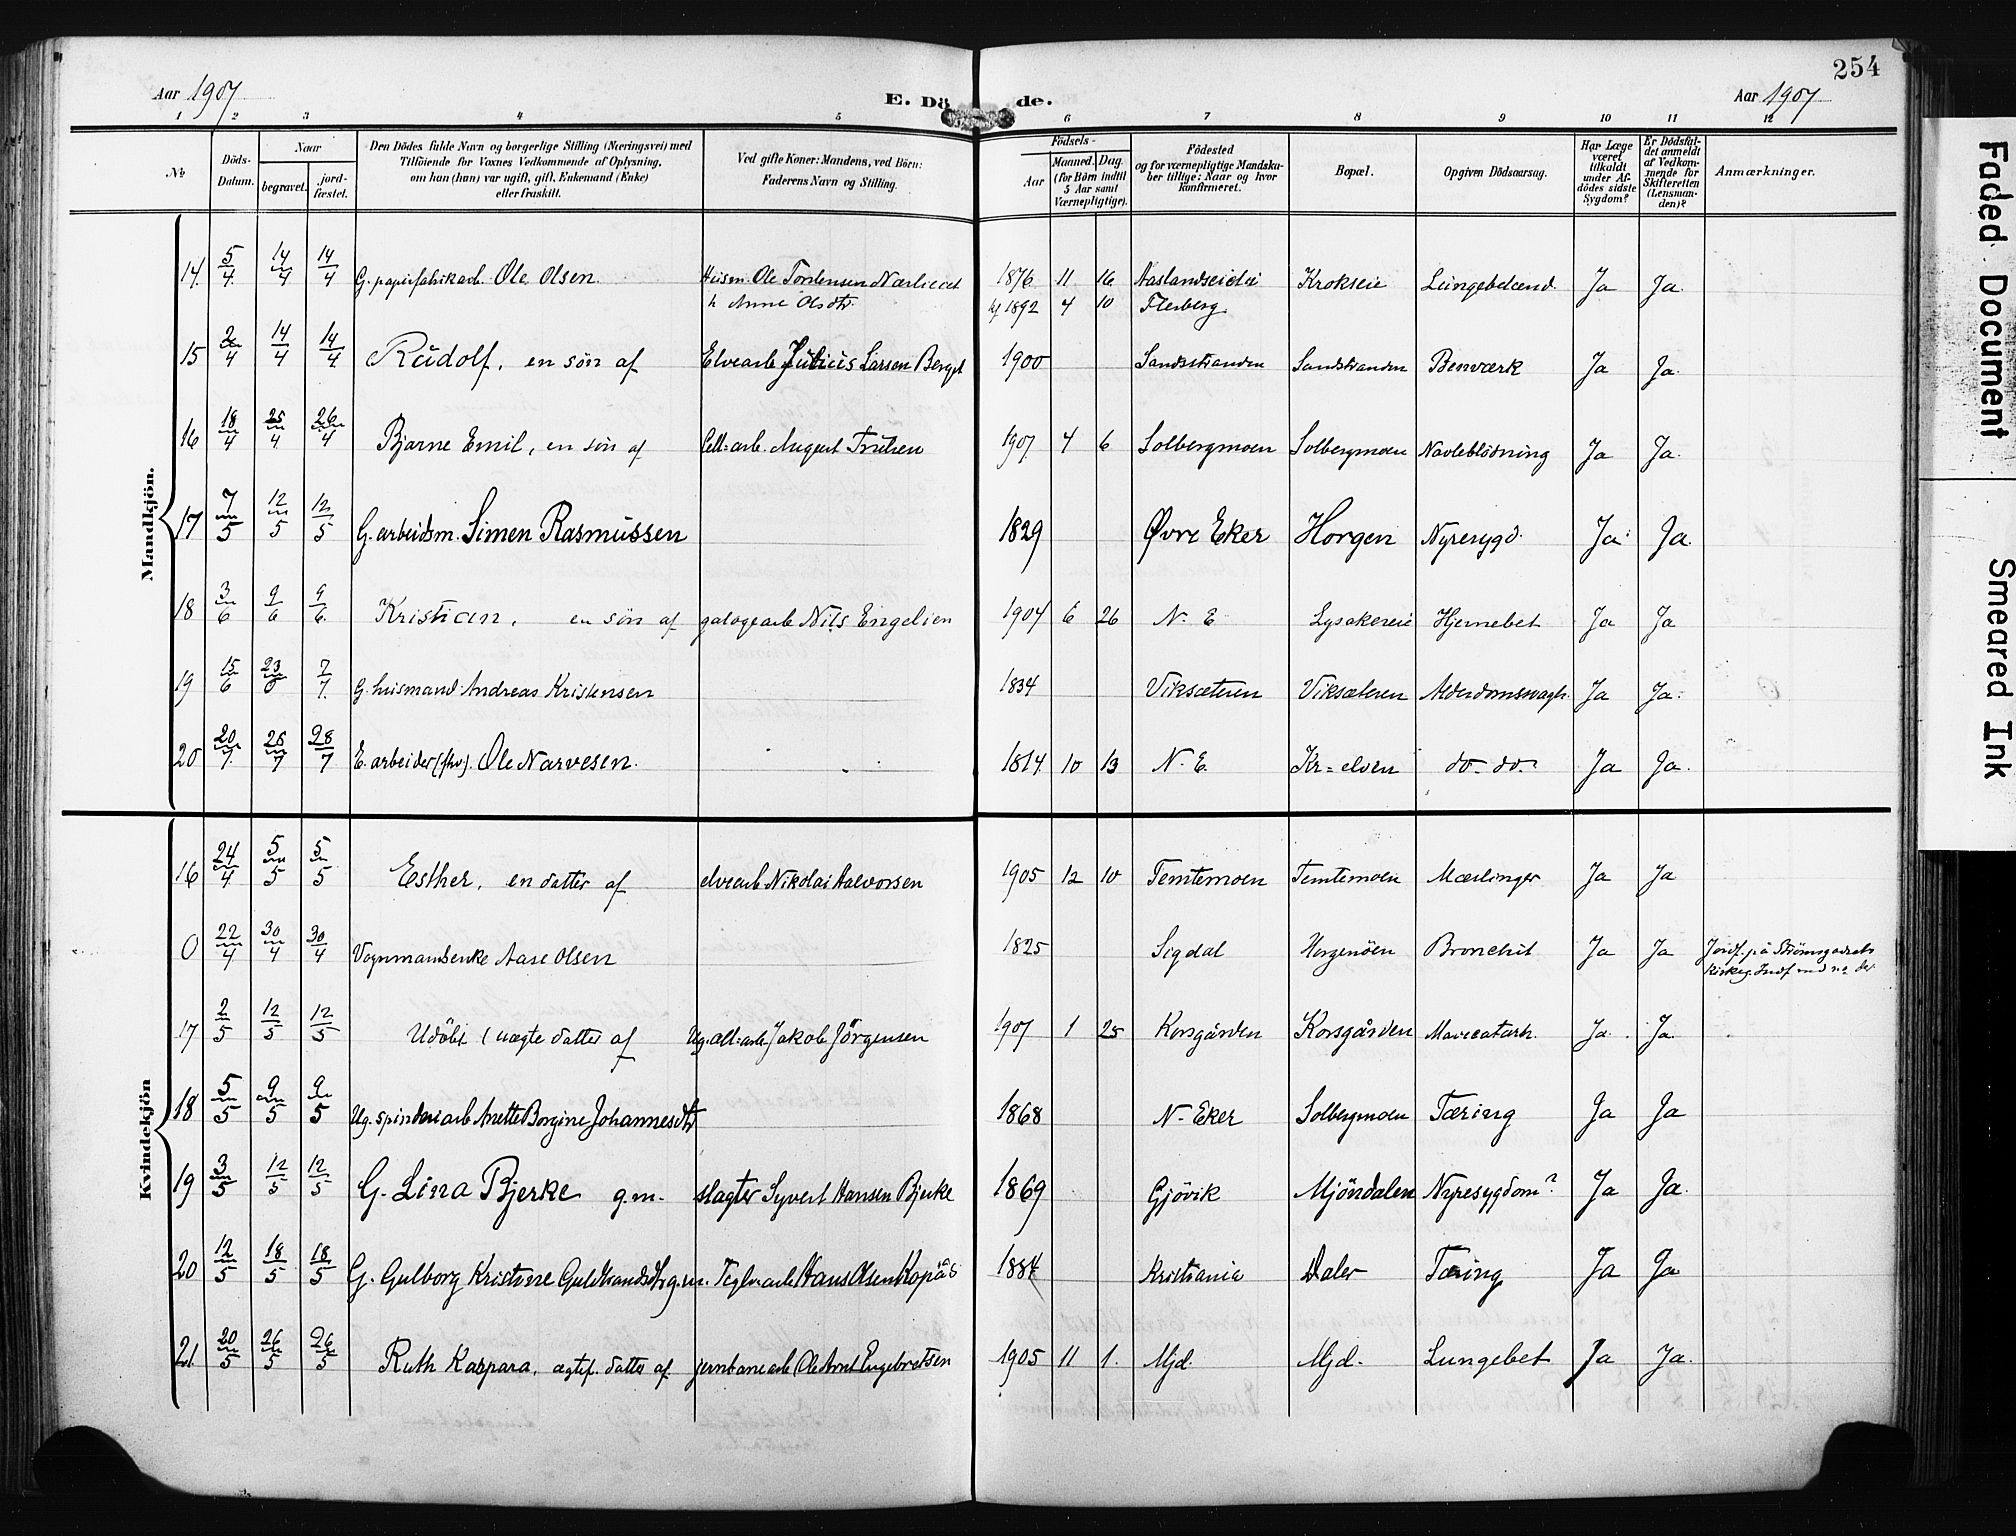 254
Aar 1907
E. Döde.
Aar 1907
1 2 3 4 5 6 7 8 9 10 11 12
No
Döds-Datum.
Naar
begravet.
jord-fæstet.
Den Dödes fulde Navn og borgerlige Stilling (Næringsvei) med
Tilföiende for Voxnes Vedkommende af Oplysning,
om han (hun) var ugift, gift, Enkemand (Enke)
eller fraskilt.
Ved gifte Koner: Mandens, ved Börn:
Faderens Navn og Stilling.
Födsels-
Aar
Maaned. Dag.
(for Börn indtil
5 Aar samt
Værnepligtige).
Födested
og for værnepligtige Mandska-
ber tillige: Naar og hvor
konfirmeret.
Bopæl.
Opgiven Dödsaarsag.
Har Læge
været
tilkaldt
under Af-
dödes sidste
Sygdom?
Er Dödsfal-
det anmeldt
af Vedkom-
mende for
Skifteretten
(Lensman-
den)?
Anmærkninger.
Mandkjön.
14. 5/4 14/4 14/4 G. papirfabrikarb. Ole Olsen. Husm. Ole Tordensen 1876 11 16 Krokseie Lungebetænd. Ja Ja.
h Anne Olsdtr 1892 4 10 Flesberg
15 2/4 14/4 14/4 Rudolf, en sön af Elvearb. Julius Larsen 1900 Sandsstranden Sandstranden Benværk Ja Ja.
16 18/4 25/4 26/4 Bjarne Emil, en sön af Cell=arb. August Trulsen 1907 4 6 Solbergmoen Solbergmoen Navleblödning Ja Ja.
17 7/5 12/5 12/5 G. arbeidsm. Simen Rasmussen 1829 Øvre Eker Horgen Nyresygd. Ja Ja.
18 3/6 9/6 9/6 Kristian, en sön af galogearb Nils Engelien 1904 6 26 N. E Lysakereie Hjernebet Ja Ja
19 15/6 23/6 7/7 G. husmand Andreas Kristensen 1834 Viksæteren Viksæteren Alderdomssvagh. Ja Ja.
20 20/7 28/7 28/7 E. arbeider (fhv). Ole Narvesen. 1814 10 13 N. E. Kr=elven do. do. Ja Ja.
Kvindekjön
16 24/4 5/5 5/5 Esther, en datter af elvearb Nikolai Halvorsen 1905 12 10 Temtemoen Temtemoen Mæslinger Ja Ja
0 22/4 30/4 30/4 Vognmandsenke Aase Olsen 1825 Sigdal Horgenöen Bronchit Ja Ja Jordf. på Strömsgodsets
17 2/5 12/5 12/5 Udöbt (uægte datter af Ug. cell=arb. Jakob Jörgensen 1907 1 25 Korsgården Korsgården Mavecatarh. Ja Ja
18 5/5 9/5 9/5 Ug. spinderiarb Anette Borgine Johannesdtr 1868 N- Eker Solbergmoen Tæring Ja Ja
19 3/5 12/5 12/5 G. Lina Bjerke g.m. slagter Syvert Hansen Bjerke 1869 Gjövik Mjöndalen Nyresygdom? Ja Ja.
20 12/5 18/5 18/5 G. Gulborg Kristine Guldbrandsdtr g.m. Teglv.arb Hans Olsen Kopås 1884 Kristiania Daler Tæring Ja Ja
21 20/5 26/5 26/5 Ruth Kaspara, ægtef. datter af jernbanearb Ole Arnt Engebretsen 1905 11 1. Mjd. Mjd. Lungebet Ja Ja.
Faded Document
Smeared Ink